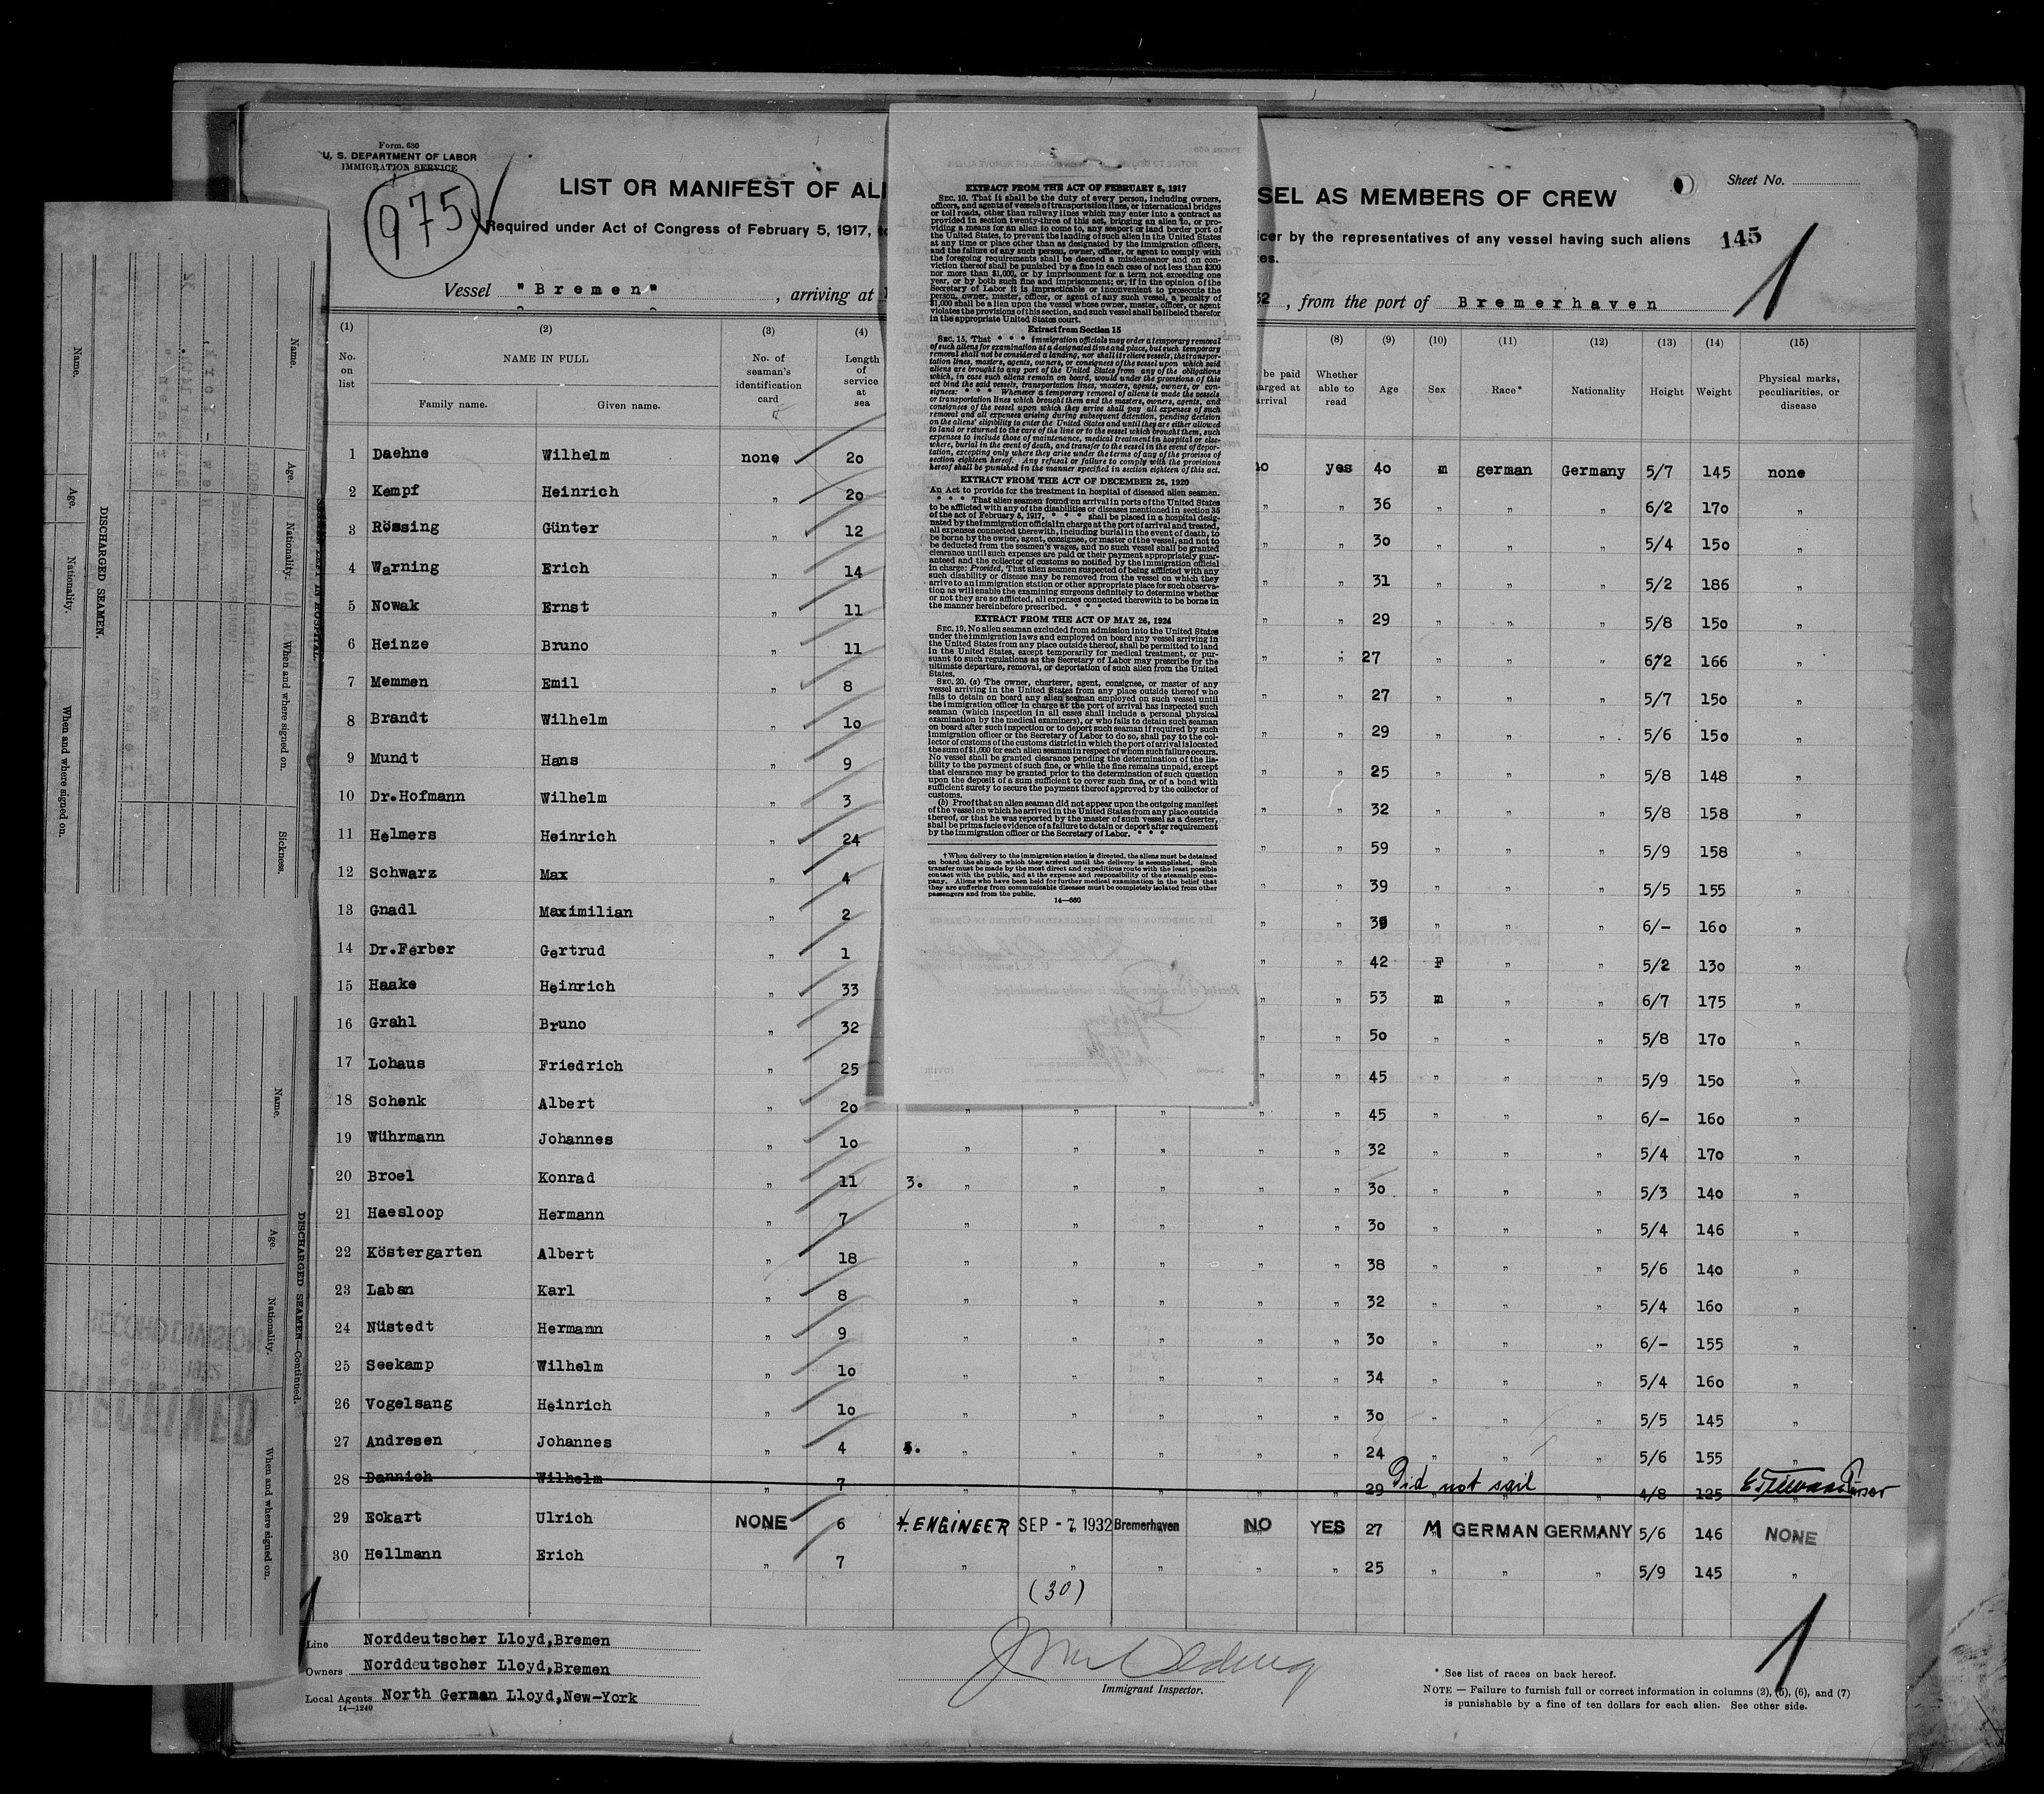 Form. 680
U. S. DEPARTMENT OF LABOR
IMMIGRATION SERVICE
975
LIST OR MANIFEST OF ALI
SEL AS MEMBERS OF CREW
Sheet No.
Required under Act of Congress of February 5, 1917,
icer by the representatives of any vessel having such aliens
145
1
Vessel "Bremen", arriving at
32, from the port of Bremerhaven
EXTRACT FROM THE ACT OF FEBRUARY 5, 1917
SEC. 10. That it shall be the duty of every person, including owners,
officers, and agents of vessels of transportation lines, or international bridges
or toll roads, other than railway lines which may enter into a contract as
provided in section twenty-three of this act, bringing an alien to, or pro-
viding a means for an alien to come to, any seaport or land border port of
the United States, to prevent the landing of such alien in the United States
at any time or place other than as designated by the immigration officers,
and the failure of any such person, owner, officer, or agent to comply with
the foregoing requirements shall be deemed a misdemeanor and on con-
viction thereof shall be punished by a fine in each case of not less than $200
nor more than $1,000, or by imprisonment for a term not exceeding one
year, or by both such fine and imprisonment; or, if in the opinion of the
Secretary of Labor it is impracticable or inconvenient to prosecute the
person, owner, master, officer, or agent of any such vessel, a penalty of
$1,000 shall be a lien upon the vessel whose owner, master, officer, or agent
violates the provisions of this section, and such vessel shall be libeled therefor
in the appropriate United States court.
Extract from Section 15
SEC. 15. That * * * immigration officials may order a temporary removal
of such aliens for examination at a designated time and place, but such temporary
removal shall not be considered a landing, nor shall it relieve vessels, the transpor-
tation lines, masters, agents, owners, or consignees of the vessel upon which said
aliens are brought to any port of the United States from any of the obligations
which, in case such aliens remain on board, would under the provisions of this
act bind the said vessels, transportation lines, masters, agents, owners, or con-
signees: * * * Whenever a temporary removal of aliens is made the vessels
or transportation lines which brought them and the masters, owners, agents, and
consignees of the vessel upon which they arrive shall pay all expenses of such
removal and all expenses arising during subsequent detention, pending decision
on the aliens' eligibility to enter the United States and until they are either allowed
to land or returned to the care of the line or to the vessel which brought them, such
expenses to include those of maintenance, medical treatment in hospital or else-
where, burial in the event of death, and transfer to the vessel in the event of depor-
tation, excepting only where they arise under the terms of any of the provisos of
section eighteen hereof. Any refusal or failure to comply with the provisions
hereof shall be punished in the manner specified in section eighteen of this act.
EXTRACT FROM THE ACT OF DECEMBER 26, 1920
An Act to provide for the treatment in hospital of diseased alien seamen.
* * * That alien seamen found on arrival in ports of the United States
to be afflicted with any of the disabilities or diseases mentioned in section 35
of the act of February 5, 1917, * * * shall be placed in a hospital desig-
nated by the immigration official in charge at the port of arrival and treated,
all expenses connected therewith, including burial in the event of death, to
be borne by the owner, agent, consignee, or master of the vessel, and not to
be deducted from the seamen's wages, and no such vessel shall be granted
clearance until such expenses are paid or their payment appropriately guar-
anteed and the collector of customs so notified by the immigration official
in charge: Provided, That alien seamen suspected of being afflicted with any
such disability or disease may be removed from the vessel on which they
arrive to an immigration station or other appropriate place for such observa-
tion as will enable the examining surgeons definitely to determine whether
or not they are so afflicted, all expenses connected therewith to be borne in
the manner hereinbefore prescribed. * * *
EXTRACT FROM THE ACT OF MAY 26, 1924
SEC. 19. No alien seaman excluded from admission into the United States
under the immigration laws and employed on board any vessel arriving in
the United States from any place outside thereof, shall be permitted to land
in the United States, except temporarily for medical treatment, or pur-
suant to such regulations as the Secretary of Labor may prescribe for the
ultimate departure, removal, or deportation of such alien from the United
States.
SEC. 20. (a) The owner, charterer, agent, consignee, or master of any
vessel arriving in the United States from any place outside thereof who
fails to detain on board any alien seaman employed on such vessel until
the immigration officer in charge at the port of arrival has inspected such
seaman (which inspection in all cases shall include a personal physical
examination by the medical examiners), or who fails to detain such seaman
on board after such inspection or to deport such seaman if required by such
immigration officer or the Secretary of Labor to do so, shall pay to the col-
lector of customs of the customs district in which the port of arrival is located
the sum of $1,000 for each alien seaman in respect of whom such failure occurs.
No vessel shall be granted clearance pending the determination of the lia-
bility to the payment of such fine, or while the fine remains unpaid, except
that clearance may be granted prior to the determination of such question
upon the deposit of a sum sufficient to cover such fine, or of a bond with
sufficient surety to secure the payment thereof approved by the collector of
customs.
(b) Proof that an alien seaman did not appear upon the outgoing manifest
of the vessel on which he arrived in the United States from any place outside
thereof, or that he was reported by the master of such vessel as a deserter,
shall be prima facie evidence of a failure to detain or deport after requirement
by the immigration officer or the Secretary of Labor. * * *
† When delivery to the immigration station is directed, the aliens must be detained
on board the ship on which they arrived until the delivery is accomplished. Such
transfer must be made by the most direct and expeditious route with the least possible
contact with the public, and at the expense and responsibility of the steamship com-
pany. Aliens who have been held for further medical examination in the belief that
they are suffering from communicable diseases must be completely isolated from other
passengers and from the public.
14—680
(1) (2) (3) (4) (8) (9) (10) (11) (12) (13) (14) (15)
No. on list
NAME IN FULL
Family name. Given name.
No. of seaman's identification card
Length of service at sea
be paid
arged at
arrival
Whether able to read
Age Sex Race* Nationality Height Weight
Physical marks, peculiarities, or disease
1 Daehne Wilhelm none 20 no yes 40 m german Germany 5/7 145 none
2 Kempf Heinrich " 20 " " 36 " " " 6/2 170 "
3 Rössing Günter " 12 " " 30 " " " 5/4 150 "
4 Warning Erich " 14 " " 31 " " " 5/2 186 "
5 Nowak Ernst " 11 " " 29 " " " 5/8 150 "
6 Heinze Bruno " 11 " " 27 " " " 6/2 166 "
7 Memmen Emil " 8 " " 27 " " " 5/7 150 "
8 Brandt Wilhelm " 10 " " 29 " " " 5/6 150 "
9 Mundt Hans " 9 " " 25 " " " 5/8 148 "
10 Dr.Hofmann Wilhelm " 3 " " 32 " " " 5/8 158 "
11 Helmers Heinrich " 24 " " 59 " " " 5/9 158 "
12 Schwarz Max " 4 " " 39 " " " 5/5 155 "
13 Gnadl Maximilian " 2 " " " " " 6/- 160 "
14 Dr.Ferber Gertrud " 1 " " 42 F " " 5/2 130 "
15 Haake Heinrich " 33 " " 53 m " " 6/7 175 "
16 Grahl Bruno " 32 " " 50 " " " 5/8 170 "
17 Lohaus Friedrich " 25 " " 45 " " " 5/9 150 "
18 Schenk Albert " 20 " " " " " 45 " " " 6/- 160 "
19 Wührmann Johannes " 10 " " " " " 32 " " " 5/4 170 "
20 Broel Konrad " 11 3. " " " " " 30 " " " 5/3 140 "
21 Haesloop Hermann " 7 " " " " " 30 " " " 5/4 146 "
22 Köstergarten Albert " 18 " " " " " 38 " " " 5/6 140 "
23 Laban Karl " 8 " " " " " 32 " " " 5/4 160 "
24 Nüstedt Hermann " 9 " " " " " 30 " " " 6/- 155 "
25 Seekamp Wilhelm " 10 " " " " " 34 " " " 5/4 160 "
26 Vogelsang Heinrich " 10 " " " " " 30 " " " 5/5 145 "
27 Andresen Johannes " 4 4. " " " " " 24 " " " 5/6 155 "
28 Dannich Wilhelm " 7 " " " " " 29 Did not sail " 4/8 125 " Purser
29 Eckart Ulrich NONE 6 4. ENGINEER SEP - 7 1932 Bremerhaven NO YES 27 M GERMAN GERMANY 5/6 146 NONE
30 Hellmann Erich " 7 " " " " " 25 " " " 5/9 145 "
(30)
1
Line Norddeutscher Lloyd,Bremen
Owners Norddeutscher Lloyd,Bremen
Local Agents North German Lloyd,New-York
14—1240
Immigrant Inspector.
* See list of races on back hereof.
NOTE — Failure to furnish full or correct information in columns (2), (5), (6), and (7)
is punishable by a fine of ten dollars for each alien. See other side.
DISCHARGED SEAMEN.
Name. Age. Nationality. When and where signed on.
Name. Age. Nationality. When and where signed on. Sickness.
DISCHARGED SEAMEN—Continued.
Name. Age. Nationality. When and where signed on.